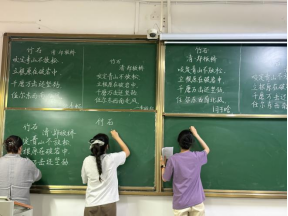 竹石
清 郑板桥
咬定青山不放松
立根原在破岩中
千磨万击还坚劲
任尔东西南北风
竹石
清 郑板桥
咬定青山不放松
立根原在破岩中
千磨万击还坚劲
任尔东西南北风
竹石
清 郑板桥
咬定青山不放松
立根原在破岩中
千磨万击还坚劲
任尔东西南北风
咬定青山不放松
立根原在破岩中
千磨万击还坚劲
任尔东西南北风
竹石
清 郑板桥
咬定青山不放松
立根原在破岩中
千磨万击还坚劲
竹石